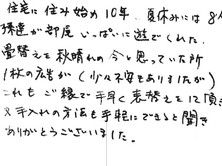 住宅に住み始め10年、夏休みには8人
孫達が部屋いっぱいに遊でくれた。
畳替えを秋晴れの今と思っていた所
1枚の広告が（少々不安もありましたが）
これもご縁で手早く表替えをして頂き
又手入れの方法も手軽にできると聞き
ありがとうございました。